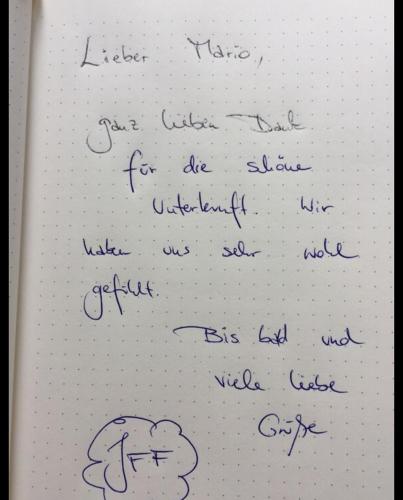 Lieber Mario,
ganz lieben Dank
für die schöne
Unterkunft. Wir
haben uns sehr wohl
gefühlt.
Bis bald und
viele liebe
Grüße
JFF